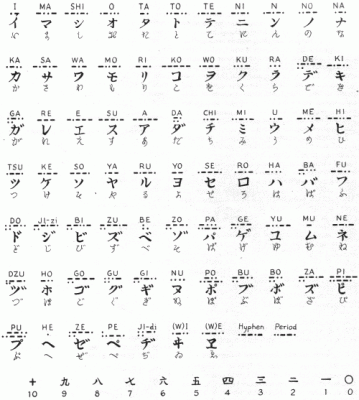 I MA SHI O TA TO TE NI N NO NA
イ マ シ オ タ ト テ ニ ン ノ ナ
い ま し お た と て に ん の な
KA SA WA MO RI KO WO KU RA DE KI
カ サ ワ モ リ コ ヲ ク ラ デ キ
か さ わ も り こ を く ら で き
GA RE E SU A DA CHI MI U ME HI
ガ レ エ ス ア ダ チ ミ ウ メ ヒ
が れ え す あ だ ち み う め ひ
TSU KE SO YA RU YO SE RO HA BA FU
ツ ケ ソ ヤ ル ヨ セ ロ ハ バ フ
つ け そ や る よ せ ろ は ば ふ
DO JI-zi BI ZU BE ZO PA GE YU MU NE
ド ジ ビ ズ ベ ゾ パ ゲ ユ ム ネ
ど じ び ず べ ぞ ぱ げ ゆ む ね
DZU HO GO GU GI NU PO BU BO ZA PI
ヅ ホ ゴ グ ギ ヌ ポ ブ ボ ザ ピ
づ ほ ご ぐ ぎ ぬ ぽ ぶ ぼ ざ ぴ
PU HE ZE PE JI-di (W)I (W)E Hyphen Period
プ ヘ ゼ ペ ヂ ヰ ヱ
ぷ へ ぜ ぺ ぢ
十 九 八 七 六 五 四 三 二 一 〇
10 9 8 7 6 5 4 3 2 1 0